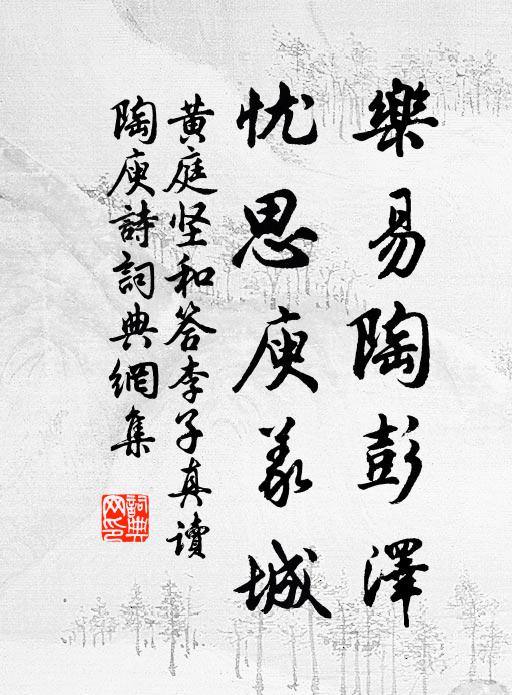 樂易陶彭澤
忧思庾義城
黄庭坚和答李子真讀
陶庾詩詞典網集
詞典网印